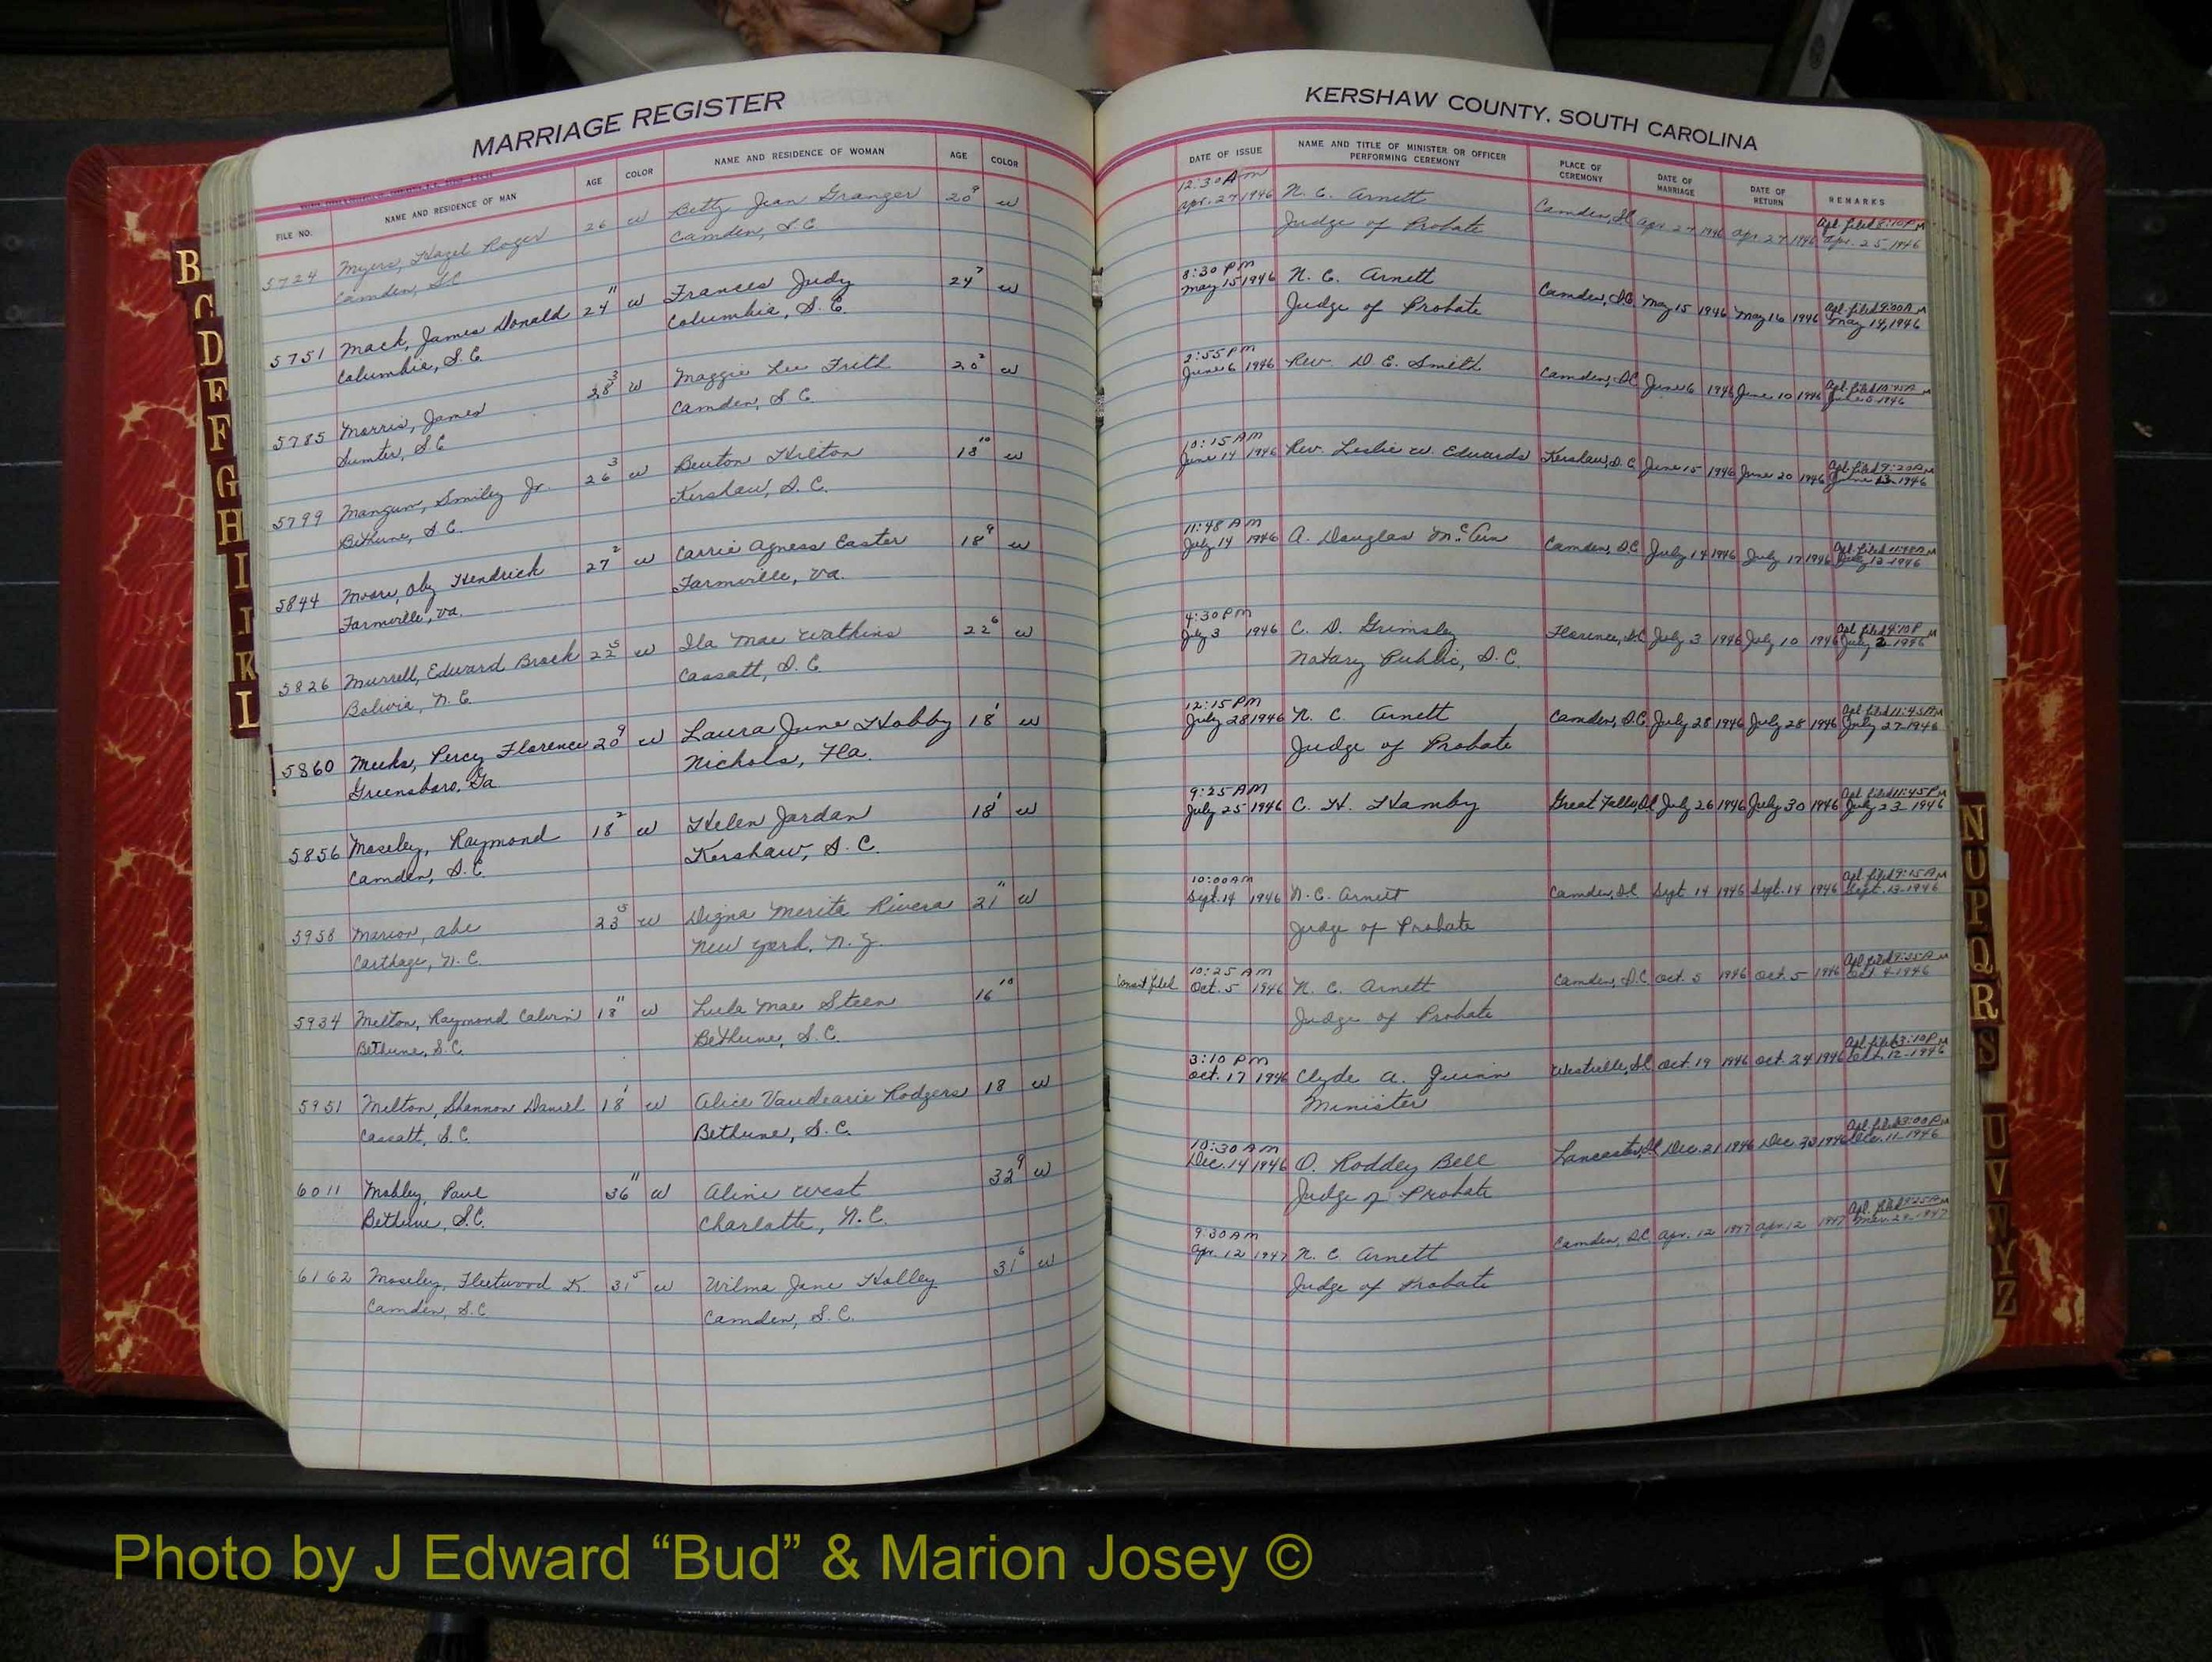 MARRIAGE REGISTER
FILE NO. NAME AND RESIDENCE OF MAN AGE COLOR NAME AND RESIDENCE OF WOMAN AGE COLOR
5724 Myers, Hazel Roger 26 w Betty Jean Granger 20 9 w
Camden, S.C. Camden, S.C.
5751 Mack, James Donald 24 11 w Frances Judy 24 7 w
Columbia, S.C. Columbia, S.C.
5785 Morris, James 28 3 w Maggie Lee Frith 20 2 w
Sumter, S.C. Camden, S.C.
5799 Mangum, Smiley Jr. 26 3 w Beuton Hilton 18 10 w
Bethune, S.C. Kershaw, S.C.
5844 Moore, Oby Hendrick 27 2 w Carrie Agness Easter 18 9 w
Farmville, Va. Farmville, Va.
5826 Murrell, Edward Brock 22 5 w Ila Mae Watkins 22 6 w
Bolivia, N.C. Cassatt, S.C.
5860 Meeks, Percy Florence 20 9 w Laura June Hobby 18 1 w
Greensboro, Ga Nichols, Fla.
5856 Moseley, Raymond 18 2 w Helen Jordan 18 1 w
Camden, S.C. Kershaw, S.C.
5958 Marion, Abe 23 5 w Digna Merita Rivera 21 11 w
Carthage, N.C. New York, N.Y.
5934 Melton, Raymond Calvin 18 11 w Lula Mae Steen 16 10
Bethune, S.C. Bethune, S.C.
5951 Melton, Shannon Daniel 18 1 w Alice Vaudearie Rodgers 18 w
Cassatt, S.C. Bethune, S.C.
6011 Mobley, Paul 36 11 w Aline West 32 9 w
Bethune, S.C. Charlotte, N.C.
6162 Moseley, Fleetwood K. 31 5 w Wilma Jane Holley 31 6 w
Camden, S.C. Camden, S.C.
KERSHAW COUNTY, SOUTH CAROLINA
DATE OF ISSUE NAME AND TITLE OF MINISTER OR OFFICER PERFORMING CEREMONY PLACE OF CEREMONY DATE OF MARRIAGE DATE OF RETURN REMARKS
12:30 AM Apl. filed 8:10 PM
Apr. 27 1946 N. C. Arnett Camden, SC Apr. 27 1946 Apr. 27 1946 Apr. 25 1946
Judge of Probate
8:30 PM Apl. filed 9:00 AM
May 15 1946 N. C. Arnett Camden, S.C. May 15 1946 May 16 1946 May 14, 1946
Judge of Probate
2:55 PM Apl. filed
June 6 1946 Rev. D. E. Smith Camden, S.C. June 6 1946 June 10 1946 June 5 1946
10:15 AM Apl. filed 9:20 AM
June 14 1946 Rev. Leslie W. Edwards Kershaw, S.C. June 15 1946 June 20 1946 June 13 1946
11:48 AM Apl. filed 11:48 AM
July 14 1946 A. Douglas Camden, S.C. July 14 1946 July 17 1946 July 12 1946
4:30 PM Apl. filed 4:10 PM
July 3 1946 C. D. Grimsley Florence, S.C. July 3 1946 July 10 1946 July 2 1946
Notary Public, S.C.
12:15 PM Apl. filed 11:45 AM
July 28 1946 N. C. Arnett Camden, S.C. July 28 1946 July 28 1946 July 27-1946
Judge of Probate
9:25 AM Apl. filed 11:45 PM
July 25 1946 C. H. Hamby Great Falls, SC July 26 1946 July 30 1946 July 23 1946
10:00 AM Apl. filed 9:15 AM
Sept. 14 1946 N. C. Arnett Camden, S.C. Sept 14 1946 Sept. 14 1946 Sept. 13-1946
Judge of Probate
Consent filed 10:25 AM Apl. filed 9:35 AM
Oct. 5 1946 N. C. Arnett Camden, S.C. Oct. 5 1946 Oct. 5 1946 Oct 4-1946
Judge of Probate
3:10 PM Apl. filed 3:10 PM
Oct. 17 1946 Clyde A. Quinn Westville, SC Oct. 19 1946 Oct. 24 1946 Oct. 12-1946
Minister
10:30 AM Apl. filed 3:00 PM
Dec. 14 1946 O. Roddey Bell Lancaster, SC Dec. 21 1946 Dec. 30 1946 Dec. 11-1946
Judge of Probate
9:30 AM Apl. filed
Apr. 12 1947 N. C. Arnett Camden, S.C. Apr. 12 1947 Apr. 12 1947 Mar. 29-1947
Judge of Probate
B
C
D
E
F
G
H
I
J
K
L
N
O
P
Q
R
S
U
V
W
Y
Z
Photo by J Edward “Bud” & Marion Josey ©